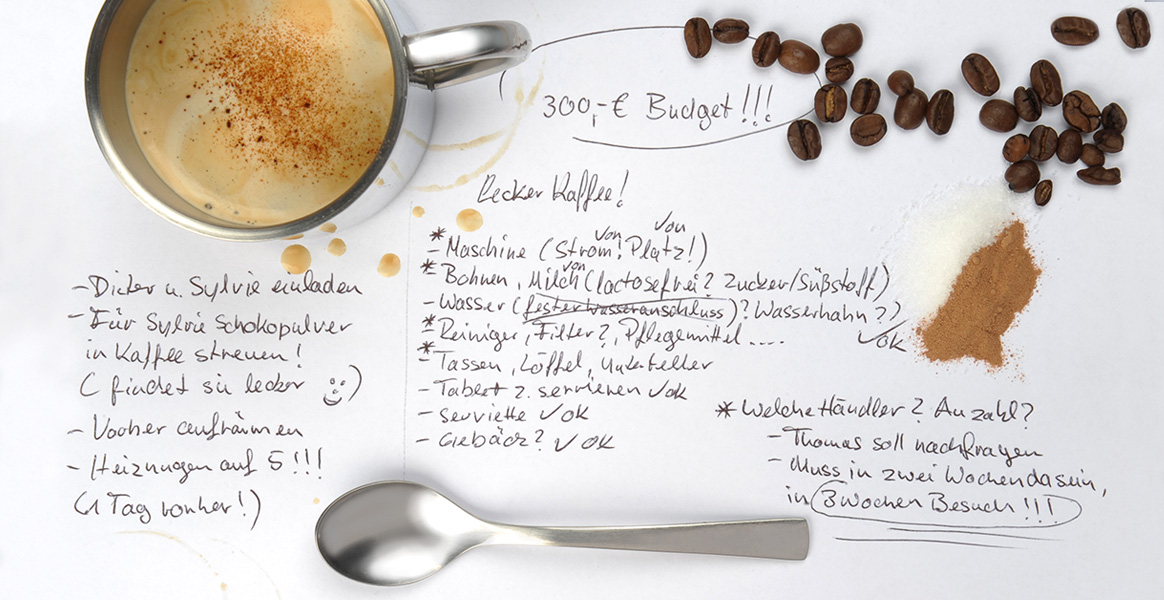 300,-€ Budget!!!
Lecker Kaffee!
von von
* - Maschine (Strom, Platz!)
von
* - Bohnen, Milch (lactosefrei? Zucker/Süßstoff)
- Wasser (fester Wasseranschluss)? Wasserhahn?)
* - Reiniger, Filter?, Pflegemittel.... ✓ok
* - Tassen, Löffel, Unterteller
- Tablett z. servieren ✓ok
- Serviette ✓ok
- Gebäck? ✓ok
- Dieter u. Sylvie einladen
- Für Sylvie Schokopulver
in Kaffee streuen!
(findet sie lecker )
- Vorher aufräumen
- Heizungen auf 5!!!
(1 Tag vorher!)
* Welche Händler? Anzahl?
- Thomas soll nachfragen
- Muss in zwei Wochen da sein,
in 3 Wochen Besuch!!!